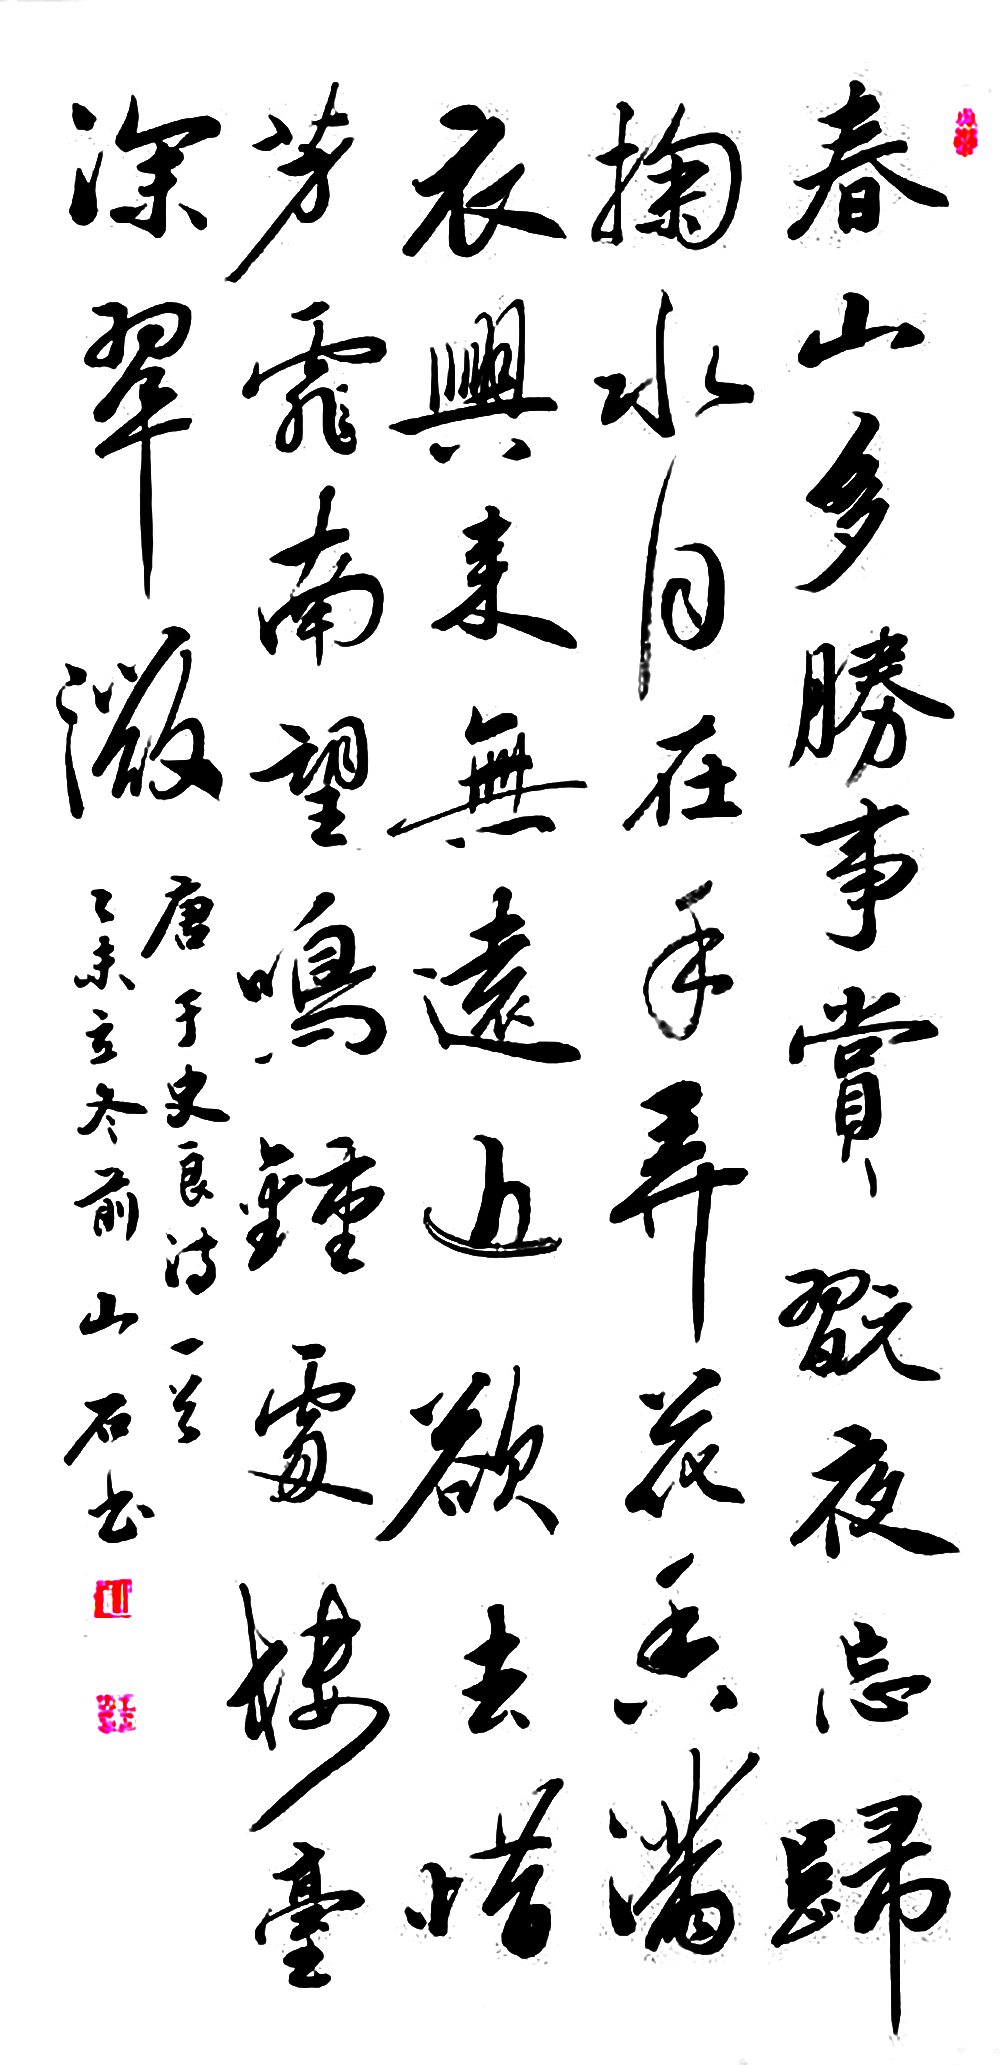 春山多勝事賞翫夜忘歸
掬水月在手弄花香滿
衣興来無遠近欲去惜
芳霏南望鳴鍾處樓臺
深翠微
唐于史良诗一首
乙未立冬前山石书